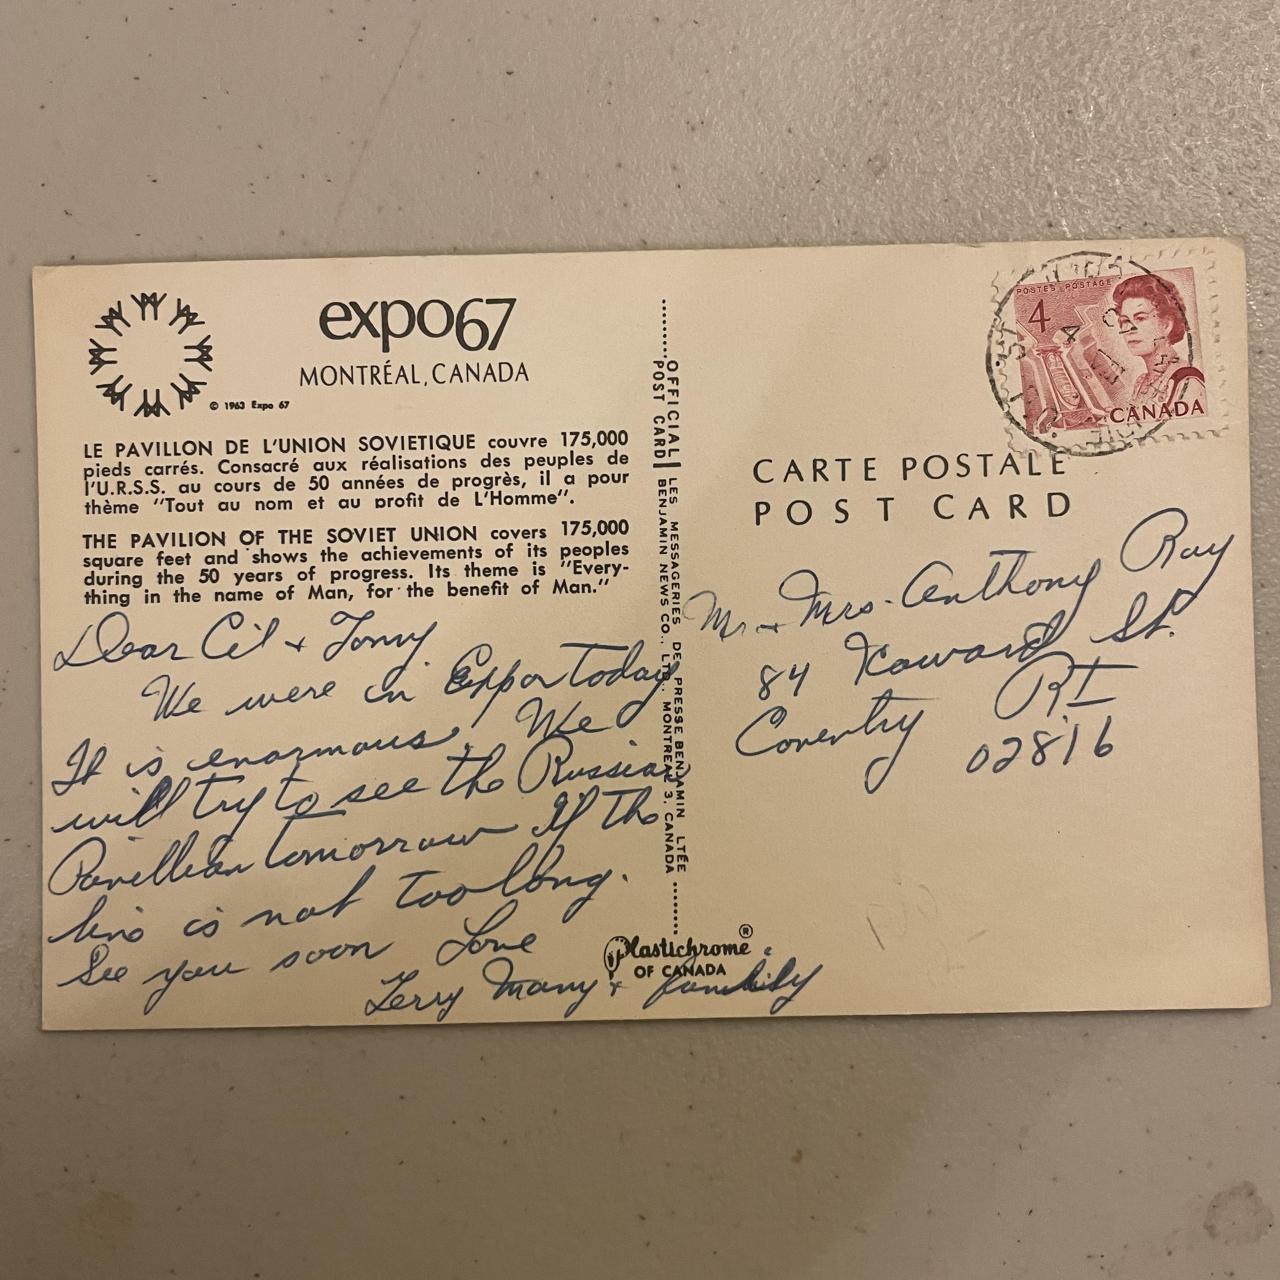 expo67
MONTRÉAL, CANADA
© 1963 Expo 67
LE PAVILLON DE L'UNION SOVIETIQUE couvre 175,000
pieds carrés. Consacré aux réalisations des peuples de
l'U.R.S.S. au cours de 50 années de progrès, il a pour
thème "Tout au nom et au profit de L'Homme".
THE PAVILION OF THE SOVIET UNION covers 175,000
square feet and shows the achievements of its peoples
during the 50 years of progress. Its theme is "Every-
thing in the name of Man, for the benefit of Man."
Dear Cil + Tony
We were in Expo today
It is enormous. We
will try to see the Russian
Pavillian tomorrow if the
line is not too long.
See you soon Love
Terry Many + family
OFFICIAL LES MESSAGERIES DE PRESSE BENJAMIN LTÉE
POST CARD BENJAMIN NEWS CO., LTD., MONTREAL 3, CANADA
Plastichrome ®
OF CANADA
POSTES POSTAGE
4
CANADA
CARTE POSTALE
POST CARD
Mr + Mrs. Anthony Ray
84 Howard St.
Coventry RI
02816